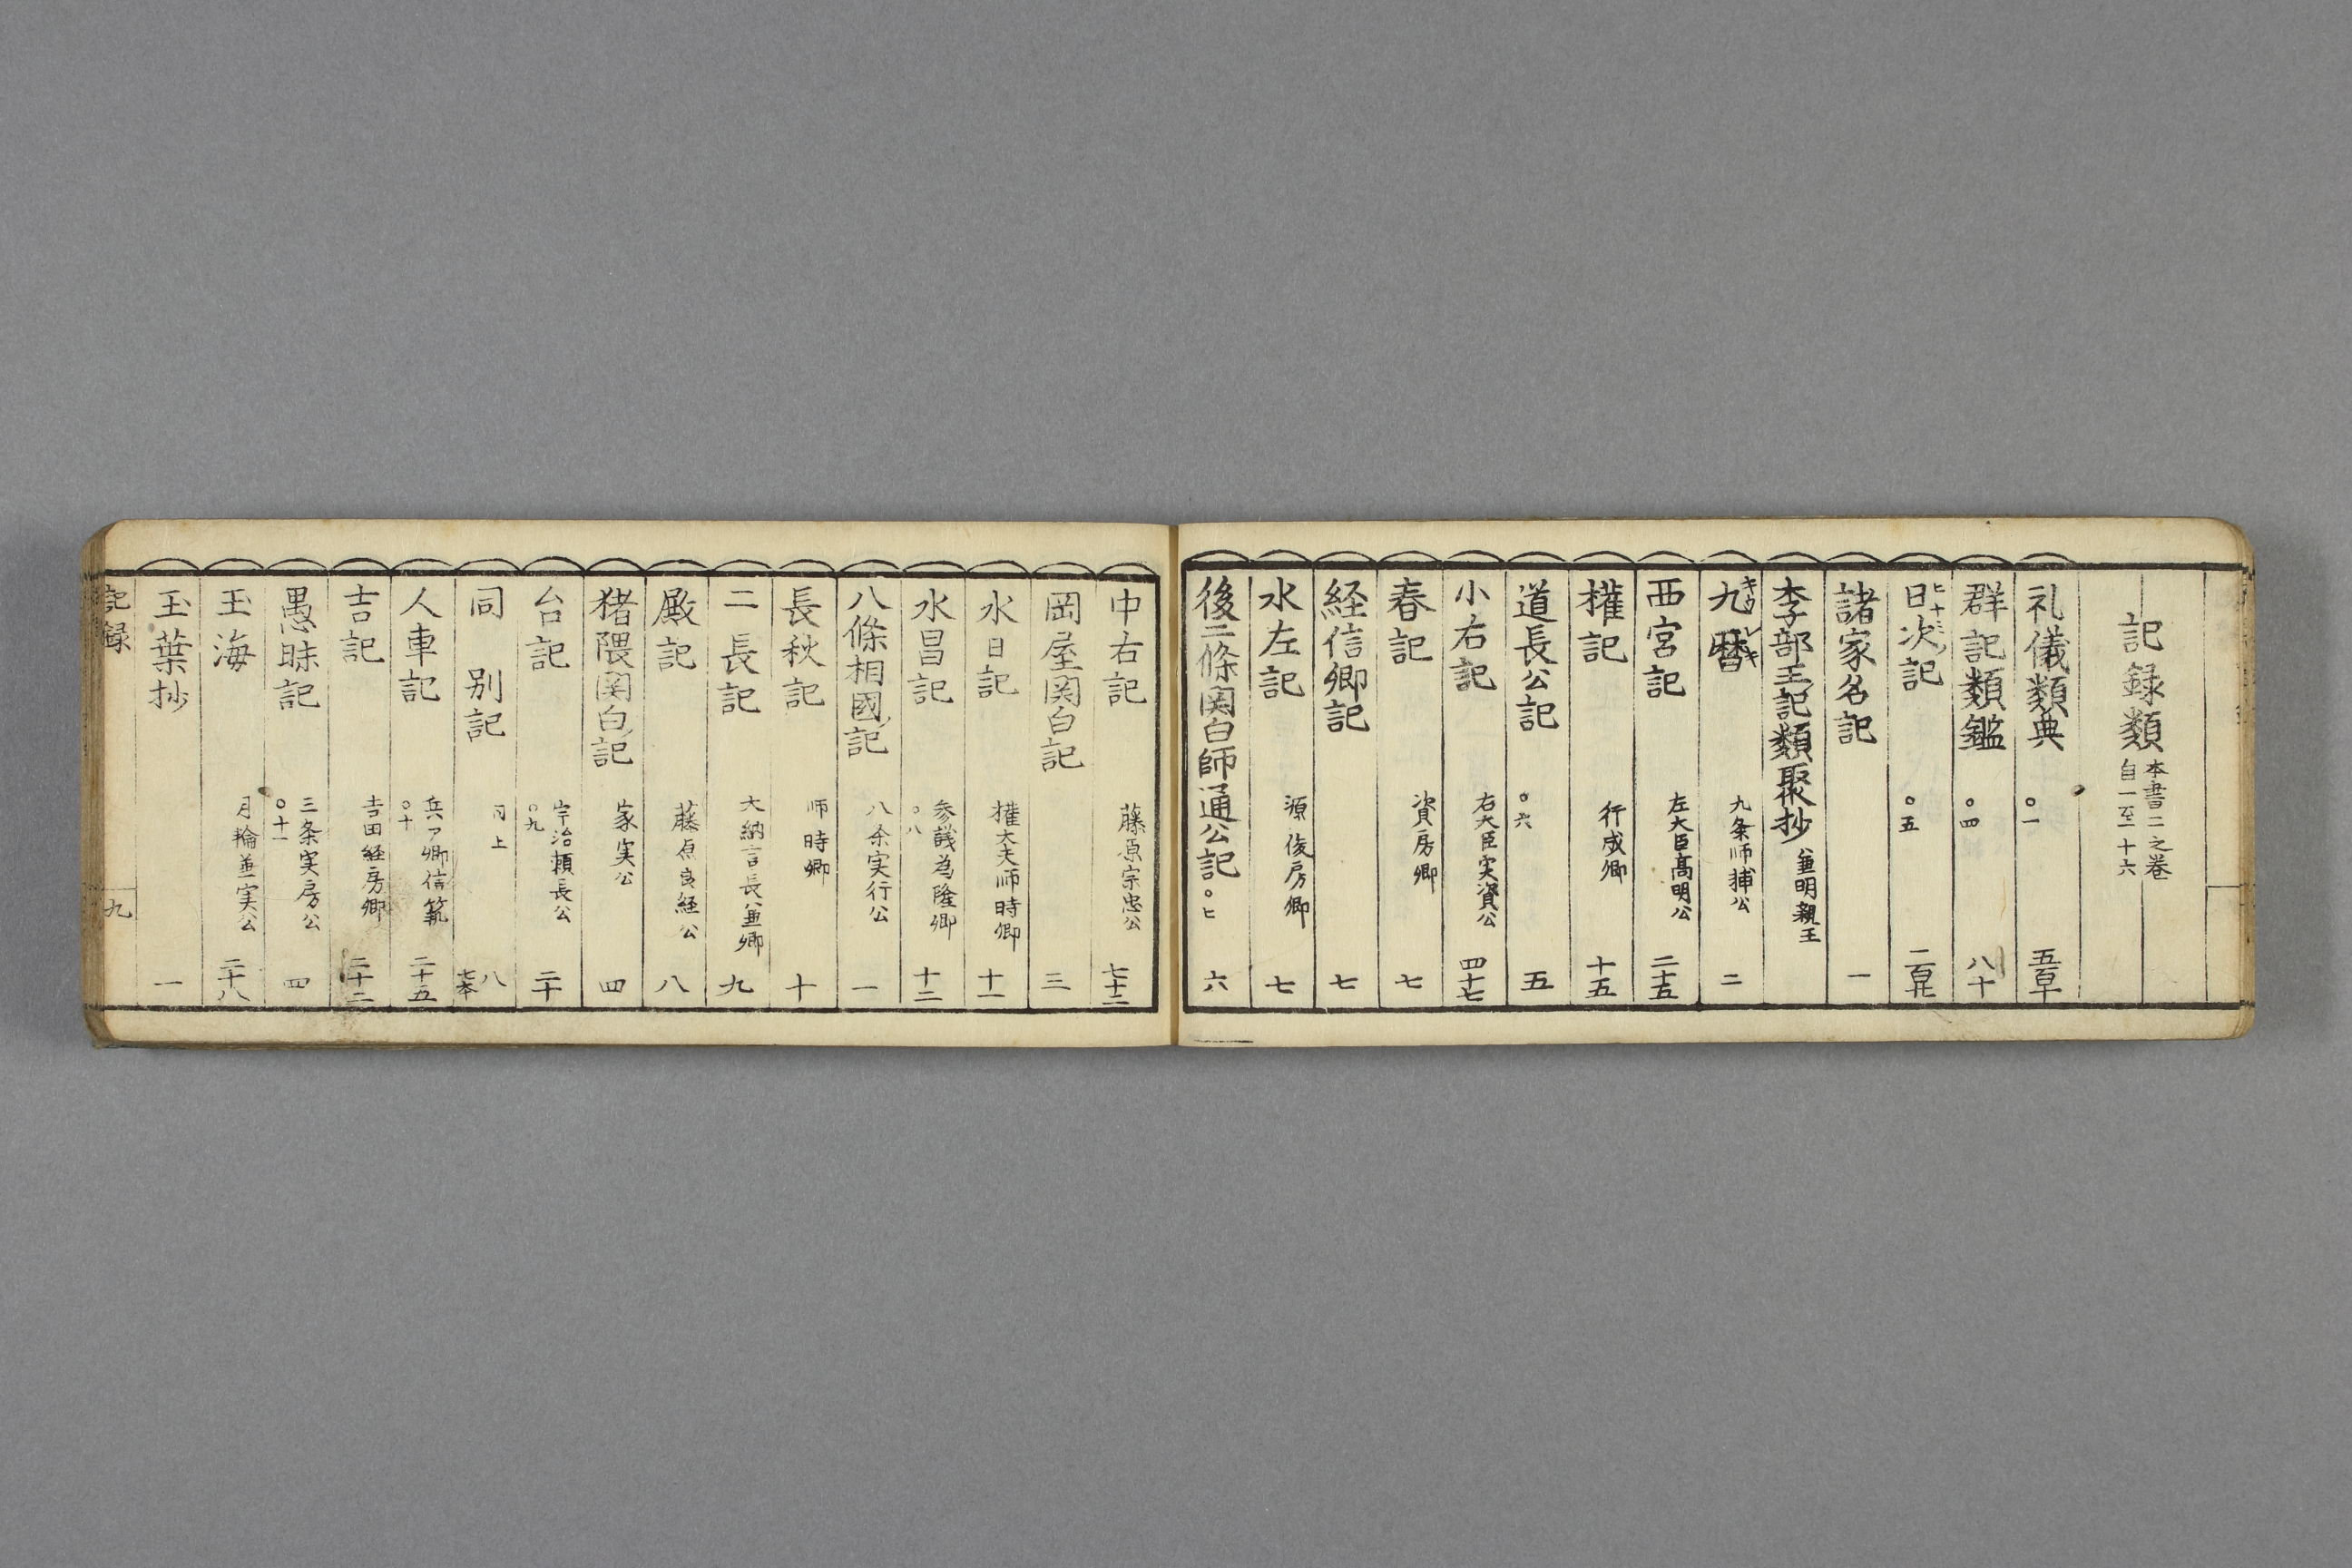 記録類 本書二之巻 自一至二十六
礼儀類典 ○一 五百十
群記類鑑 ○四 八十
日次記 ヒナミ ○五
諸家名記 一
李部王記類聚抄 兼明親王
九暦 キウレキ 九条師輔公 二
西宮記 左大臣高明公 二十五
権記 行成卿 十五
道長公記 ○六 五
小右記 右大臣実資公 四十七
春記 資房卿 七
経信卿記 七
水左記 源俊房卿 七
後二條関白師通公記 ○七 六
中右記 藤原宗忠公 七十二
岡屋関白記 三
水日記 権大夫師時卿 十一
水昌記 参議為隆卿 ○八 十二
八條相國記 八条実行公 一
長秋記 師時卿 十
二長記 大納言長兼卿 九
殿記 藤原良経公 八
猪隈関白記 家実公 四
台記 宇治頼長公 ○九 二十
同別記 同上 八 七本
人車記 兵ア卿信範 ○十 二十五
吉記 吉田経房卿 二十二
愚昧記 三条実房公 ○十一 四
玉海 月輪兼実公 二十八
玉葉抄 一
記録 九